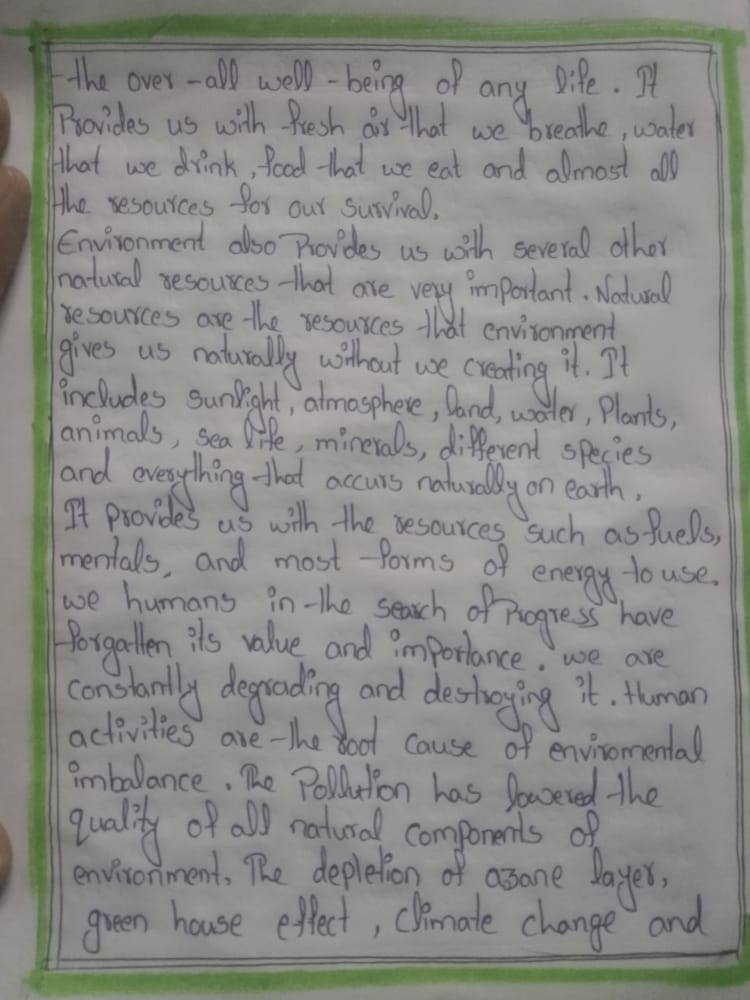 the over-all well-being of any life. It
Provides us with fresh air that we breathe, water
that we drink, food that we eat and almost all
the resources for our survival.
Environment also Provides us with several other
natural resources that are very important. Natural
resources are the resources that environment
gives us naturally without we creating it. It
includes sunlight, atmosphere, land, water, Plants,
animals, sea life, minerals, different species
and everything that accurs naturally on earth.
It provides us with the resources such as fuels,
mentals, and most forms of energy to use.
we humans in the search of Progress have
forgatten its value and importance. we are
constantly degrading and destroying it. Human
activities are the root cause of enviromental
imbalance. The Pollution has lowered the
quality of all natural components of
environment. The depletion of azane layer,
green house effect, climate change and